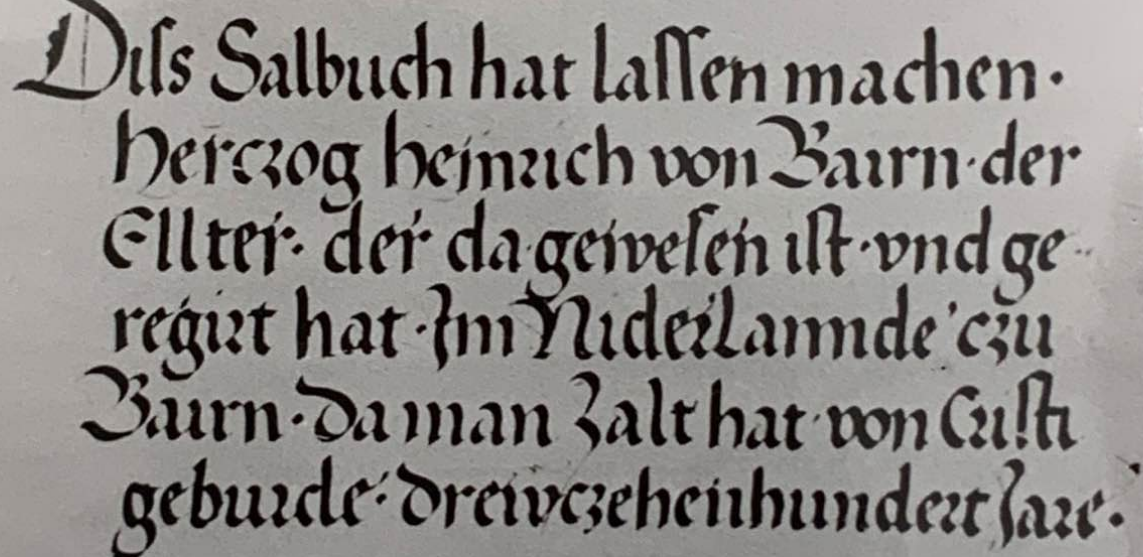 Diſs Salbuch hat laſſen machen·
herczog heinrich von Bairn·der
Ellter· der da·geweſen iſt·vnd ge
regirt hat·Im Niderlannde·czu
Bairn·Da man Zalt hat·von Criſti
geburde·Drewczehenhundert Jare·